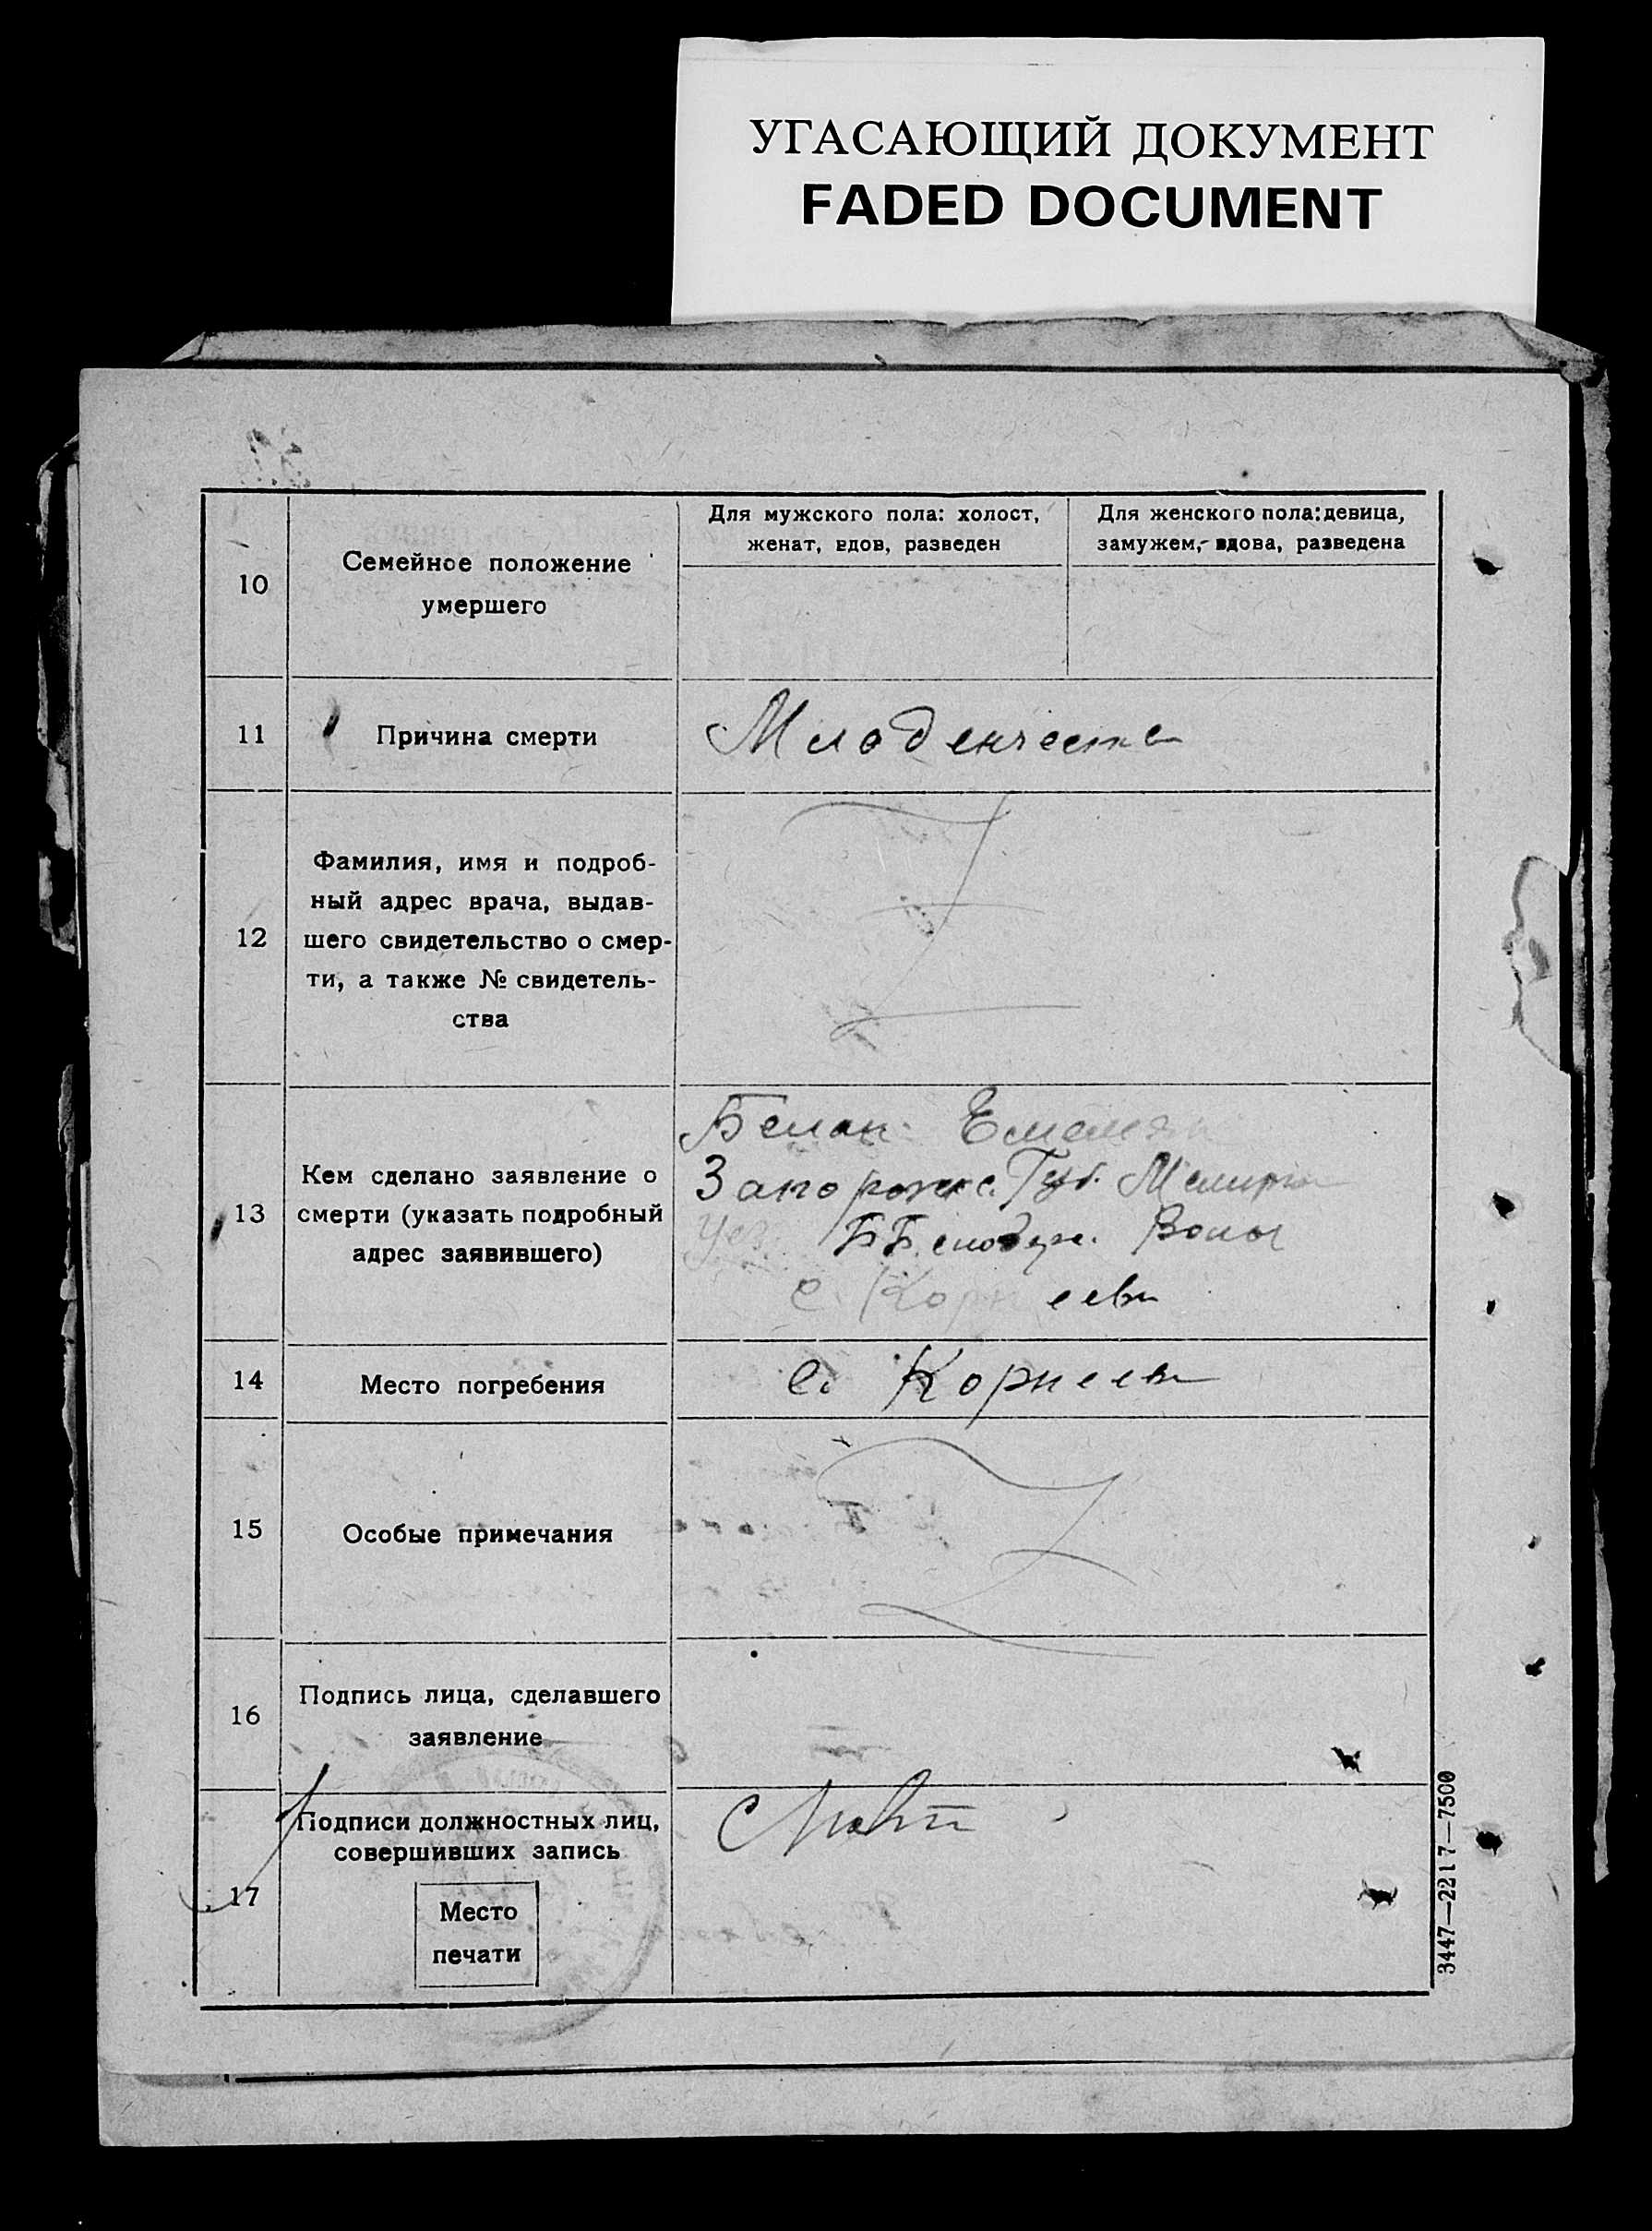 УГАСАЮЩИЙ ДОКУМЕНТ
FADED DOCUMENT
10
Семейное положение
умершего
Для мужского пола: холост,
женат, вдов, разведен
Для женского пола: девица,
замужем, вдова, разведена
11
Причина смерти
Младенчество
12
Фамилия, имя и подроб-
ный адрес врача, выдав-
шего свидетельство о смер-
ти, а также № свидетель-
ства
13
Кем сделано заявление о
смерти (указать подробный
адрес заявившего)
Белан Емельян
Запорожс. Губ.
Уез. Волос
с. Корнеевк
14
Место погребения
с. Корнеевк
15
Особые примечания
16
Подпись лица, сделавшего
заявление
17
Подписи должностных лиц,
совершивших запись
Место
печати
3447—2217—7500